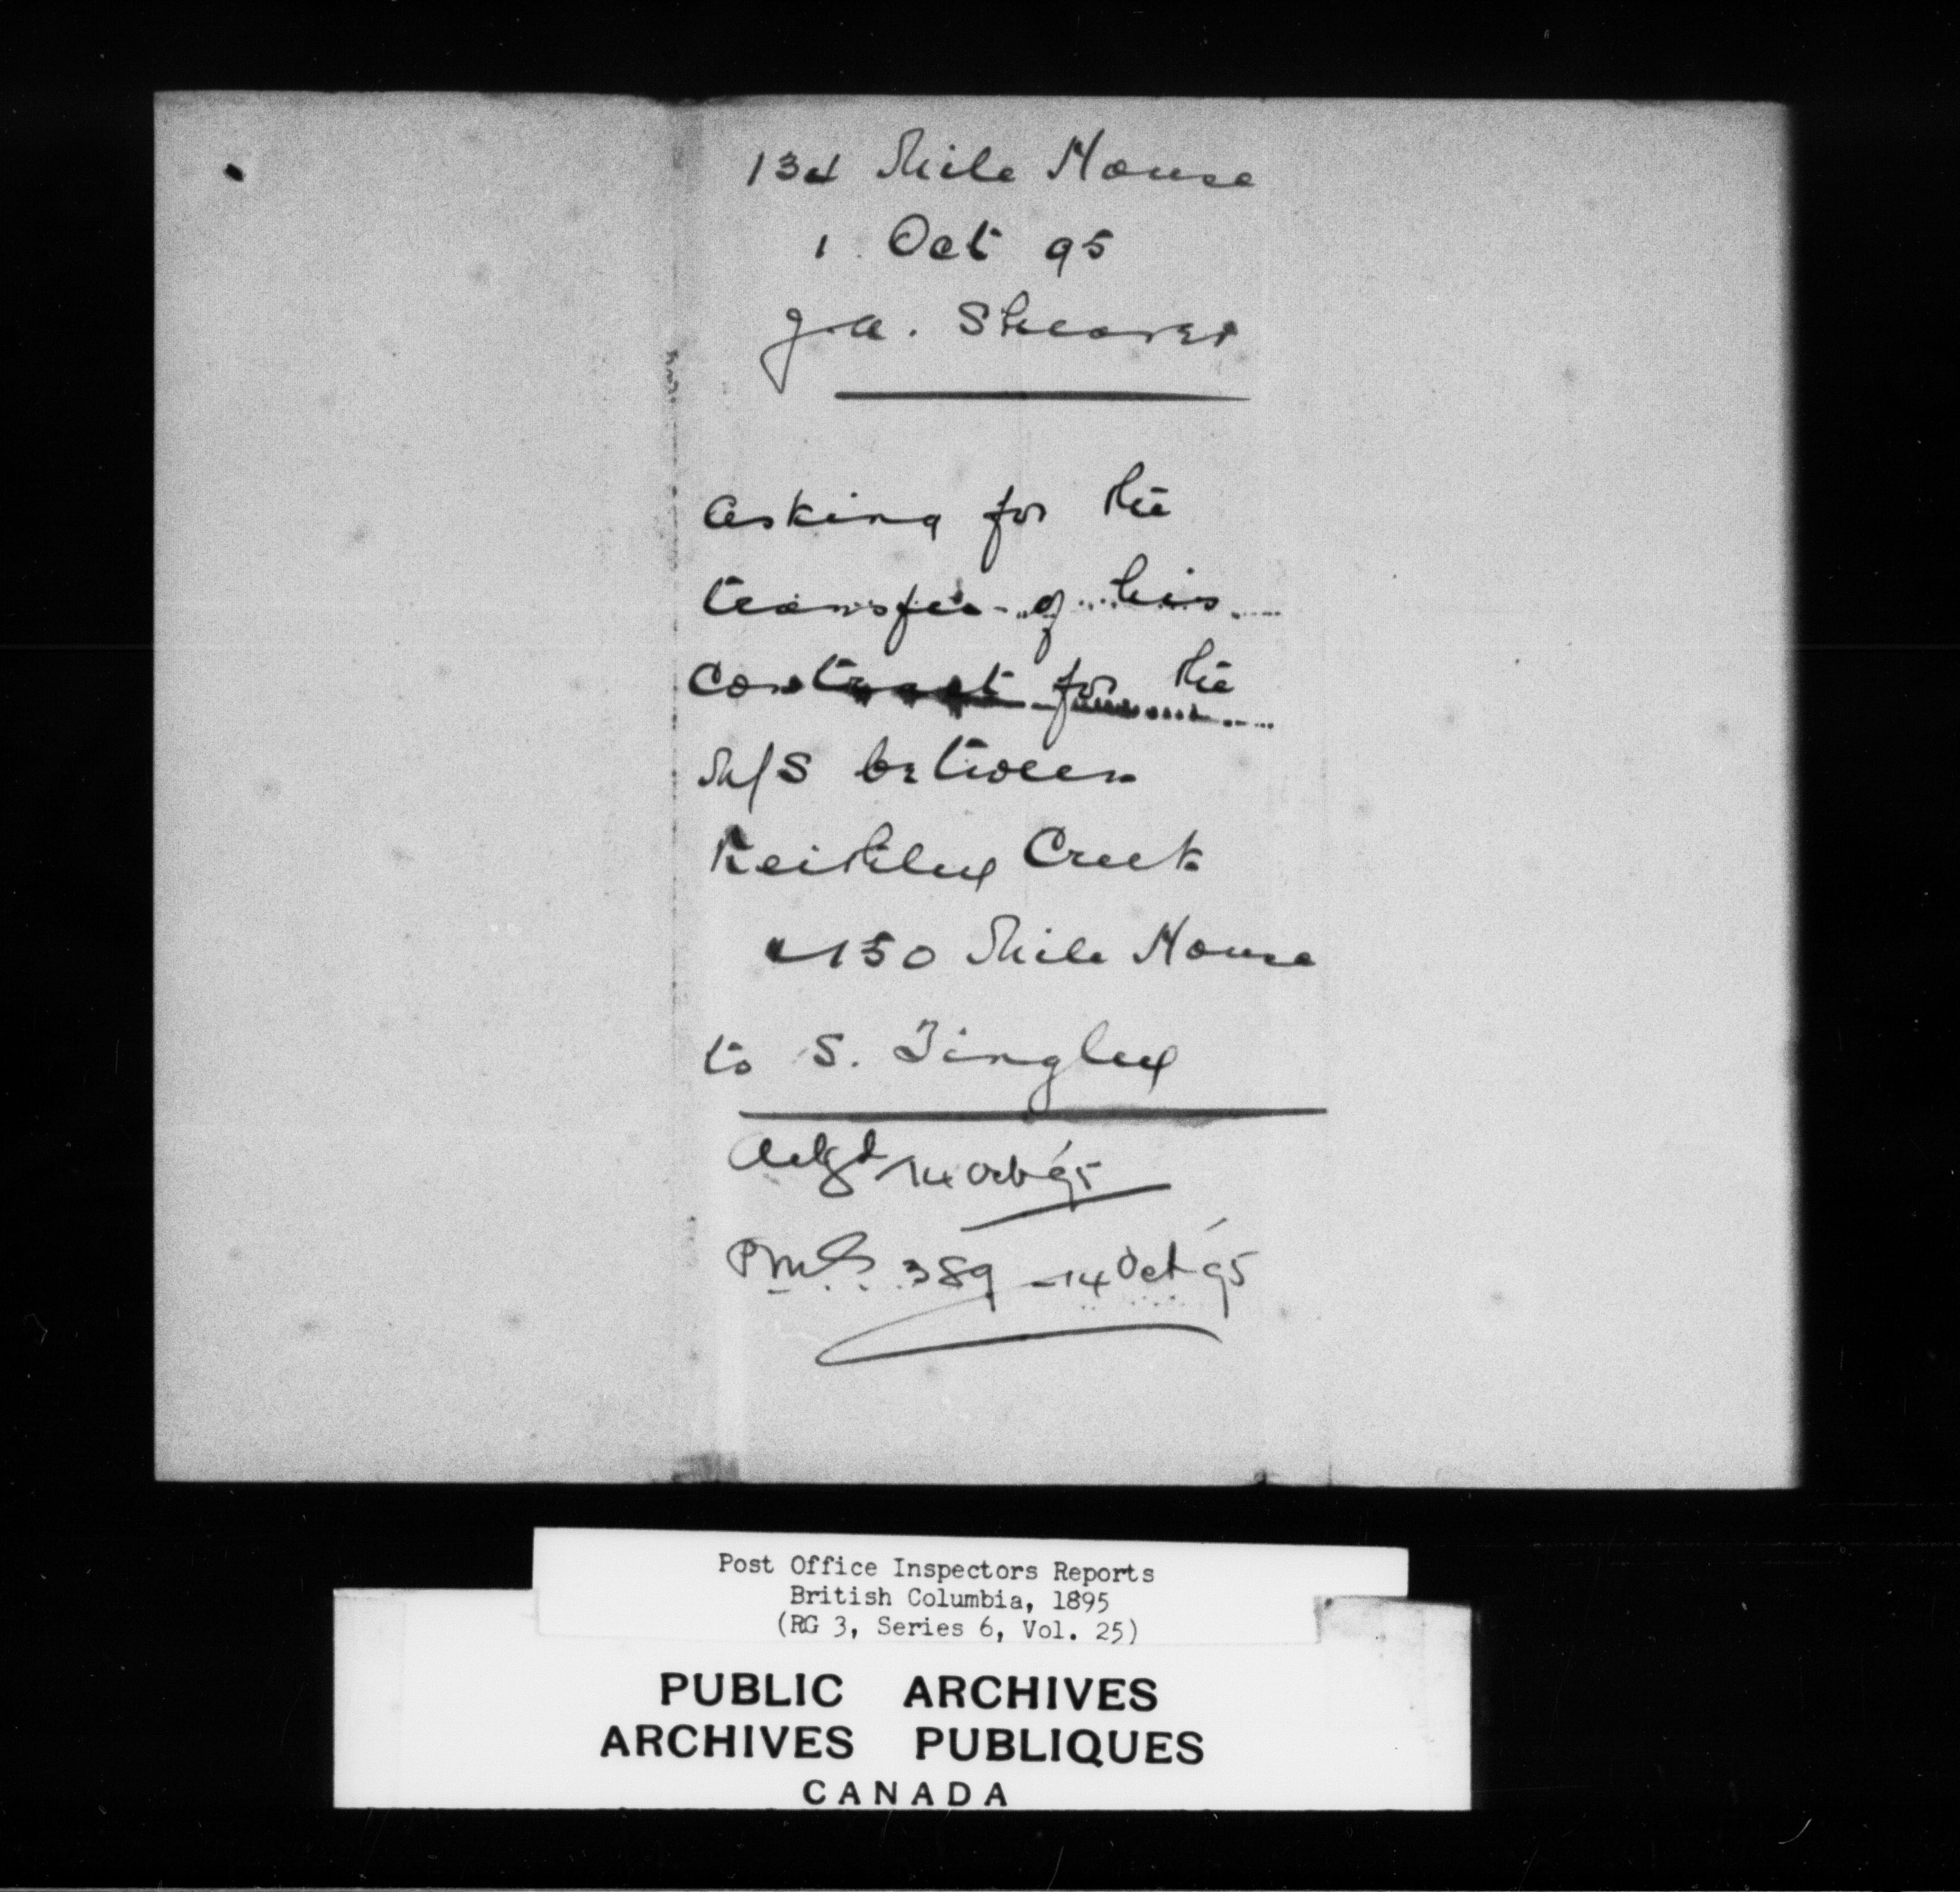 134 Mile House
1 Oct 95
J.A. Shearer
asking for the
transfer of his
contract for the
M/S between
Keithley Creek
& 150 Mile House
to S. Tingley
Ackgd 14 Oct 95
PMG 389 - 14 Oct 95
Post Office Inspectors Reports
British Columbia, 1895
(RG 3, Series 6, Vol. 25)
PUBLIC ARCHIVES
ARCHIVES PUBLIQUES
CANADA